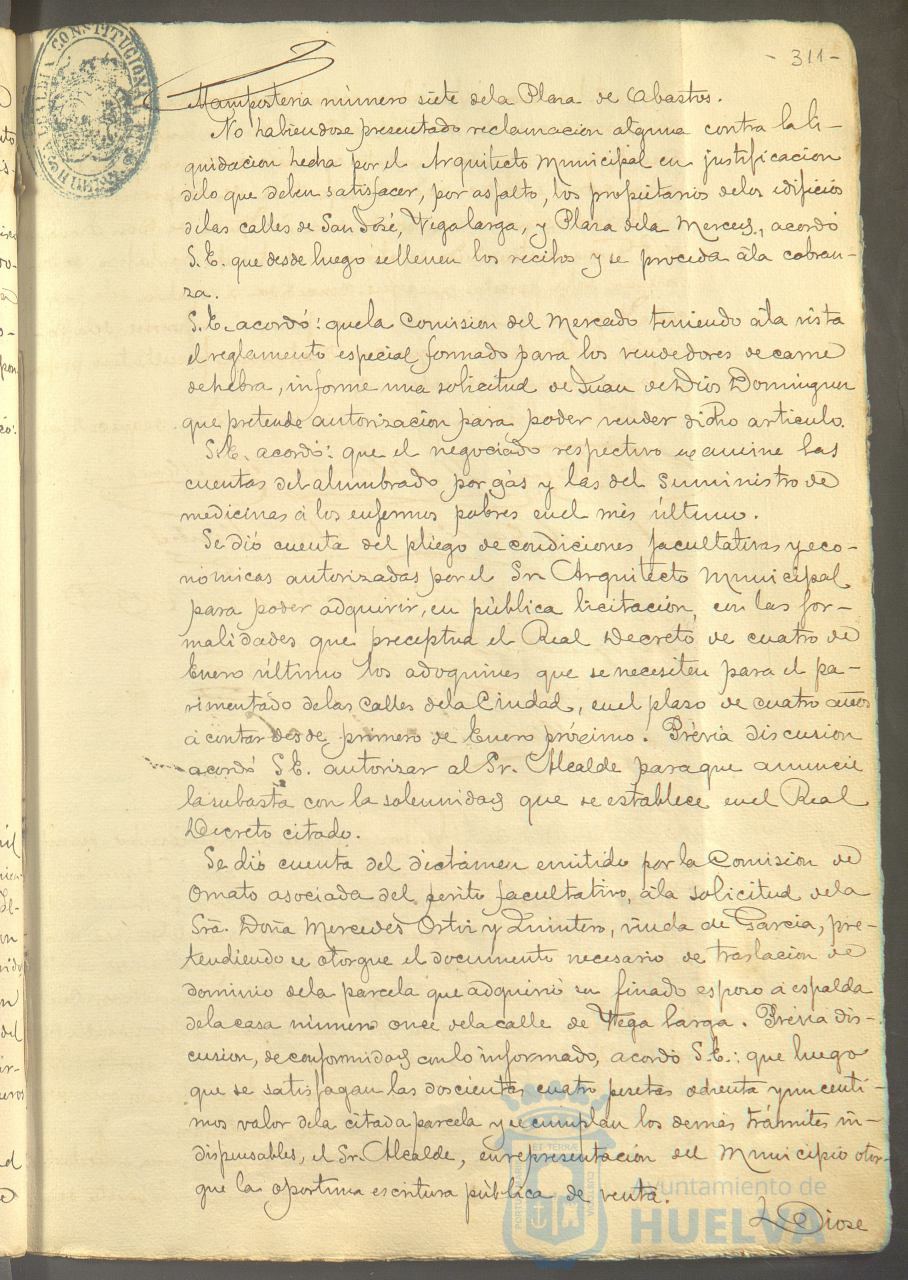 - 311 -
ALCALDIA CONSTITUCIONAL DE HUELVA
Mamposteria número siete dela Plaza de Abastos.
No habiendose presentado reclamacion alguna contra la li-
quidacion hecha por el Arquitecto Municipal en justificacion
delo que deben satisfacer, por asfalto, los propietarios delos edificios
delas calles de San José, Vega larga, y Plaza dela Merced, acordó
S. E. que desde luego sellenen los recibos y se proceda ála cobran-
za.
S. E. acordó: quela Comision del Mercado teniendo ála vista
el reglamento especial formado para los vendedores de carne
de hebra, informe una solicitud de Juan de Dios Dominguez
que pretende autorizacion para poder vender dicho articulo.
S. E. acordó: que el negociado respectivo examine las
cuentas del alumbrado por gás y las del Suministro de
medicinas á los enfermos pobres enel mes último.
Se dió cuenta del pliego de condiciones facultativas y eco-
nómicas autorizadas por el Sr. Arquitecto Municipal
para poder adquirir, en pública licitación, con las for-
malidades que preceptua el Real Decreto de cuatro de
Enero último los adoquines que se necesiten para el pa-
vimentado delas calles dela Ciudad, enel plazo de cuatro años
á contar desde primero de Enero próximo. Prévia discusion
acordó S. E. autorizar al Sr. Alcalde para que anuncie
la subasta con la solemnidad que se establece en el Real
Decreto citado.
Se dió cuenta del dictámen emitido por la Comision de
Ornato asociada del perito facultativo, ála solicitud dela
Srá. Doña Mercedes Ortiz y Quintero, viuda de Garcia, pre-
tendiendo se otorgue el documento necesario de traslacion de
dominio dela parcela que adquirió su finado esposo á espalda
dela casa número once dela calle de Vega larga. Prévia dis-
cusion, de conformidad con lo informado, acordó S. E.: que luego
que se satisfagan las doscientas cuatro pesetas ochenta y un centi-
mos valor dela citada parcela y se cumplan los demas trámites in-
dispensables, el Sr. Alcalde, en representacion del Municipio otor-
gue la oportuna escritura pública de venta.
Diose
Ayuntamiento de
HUELVA